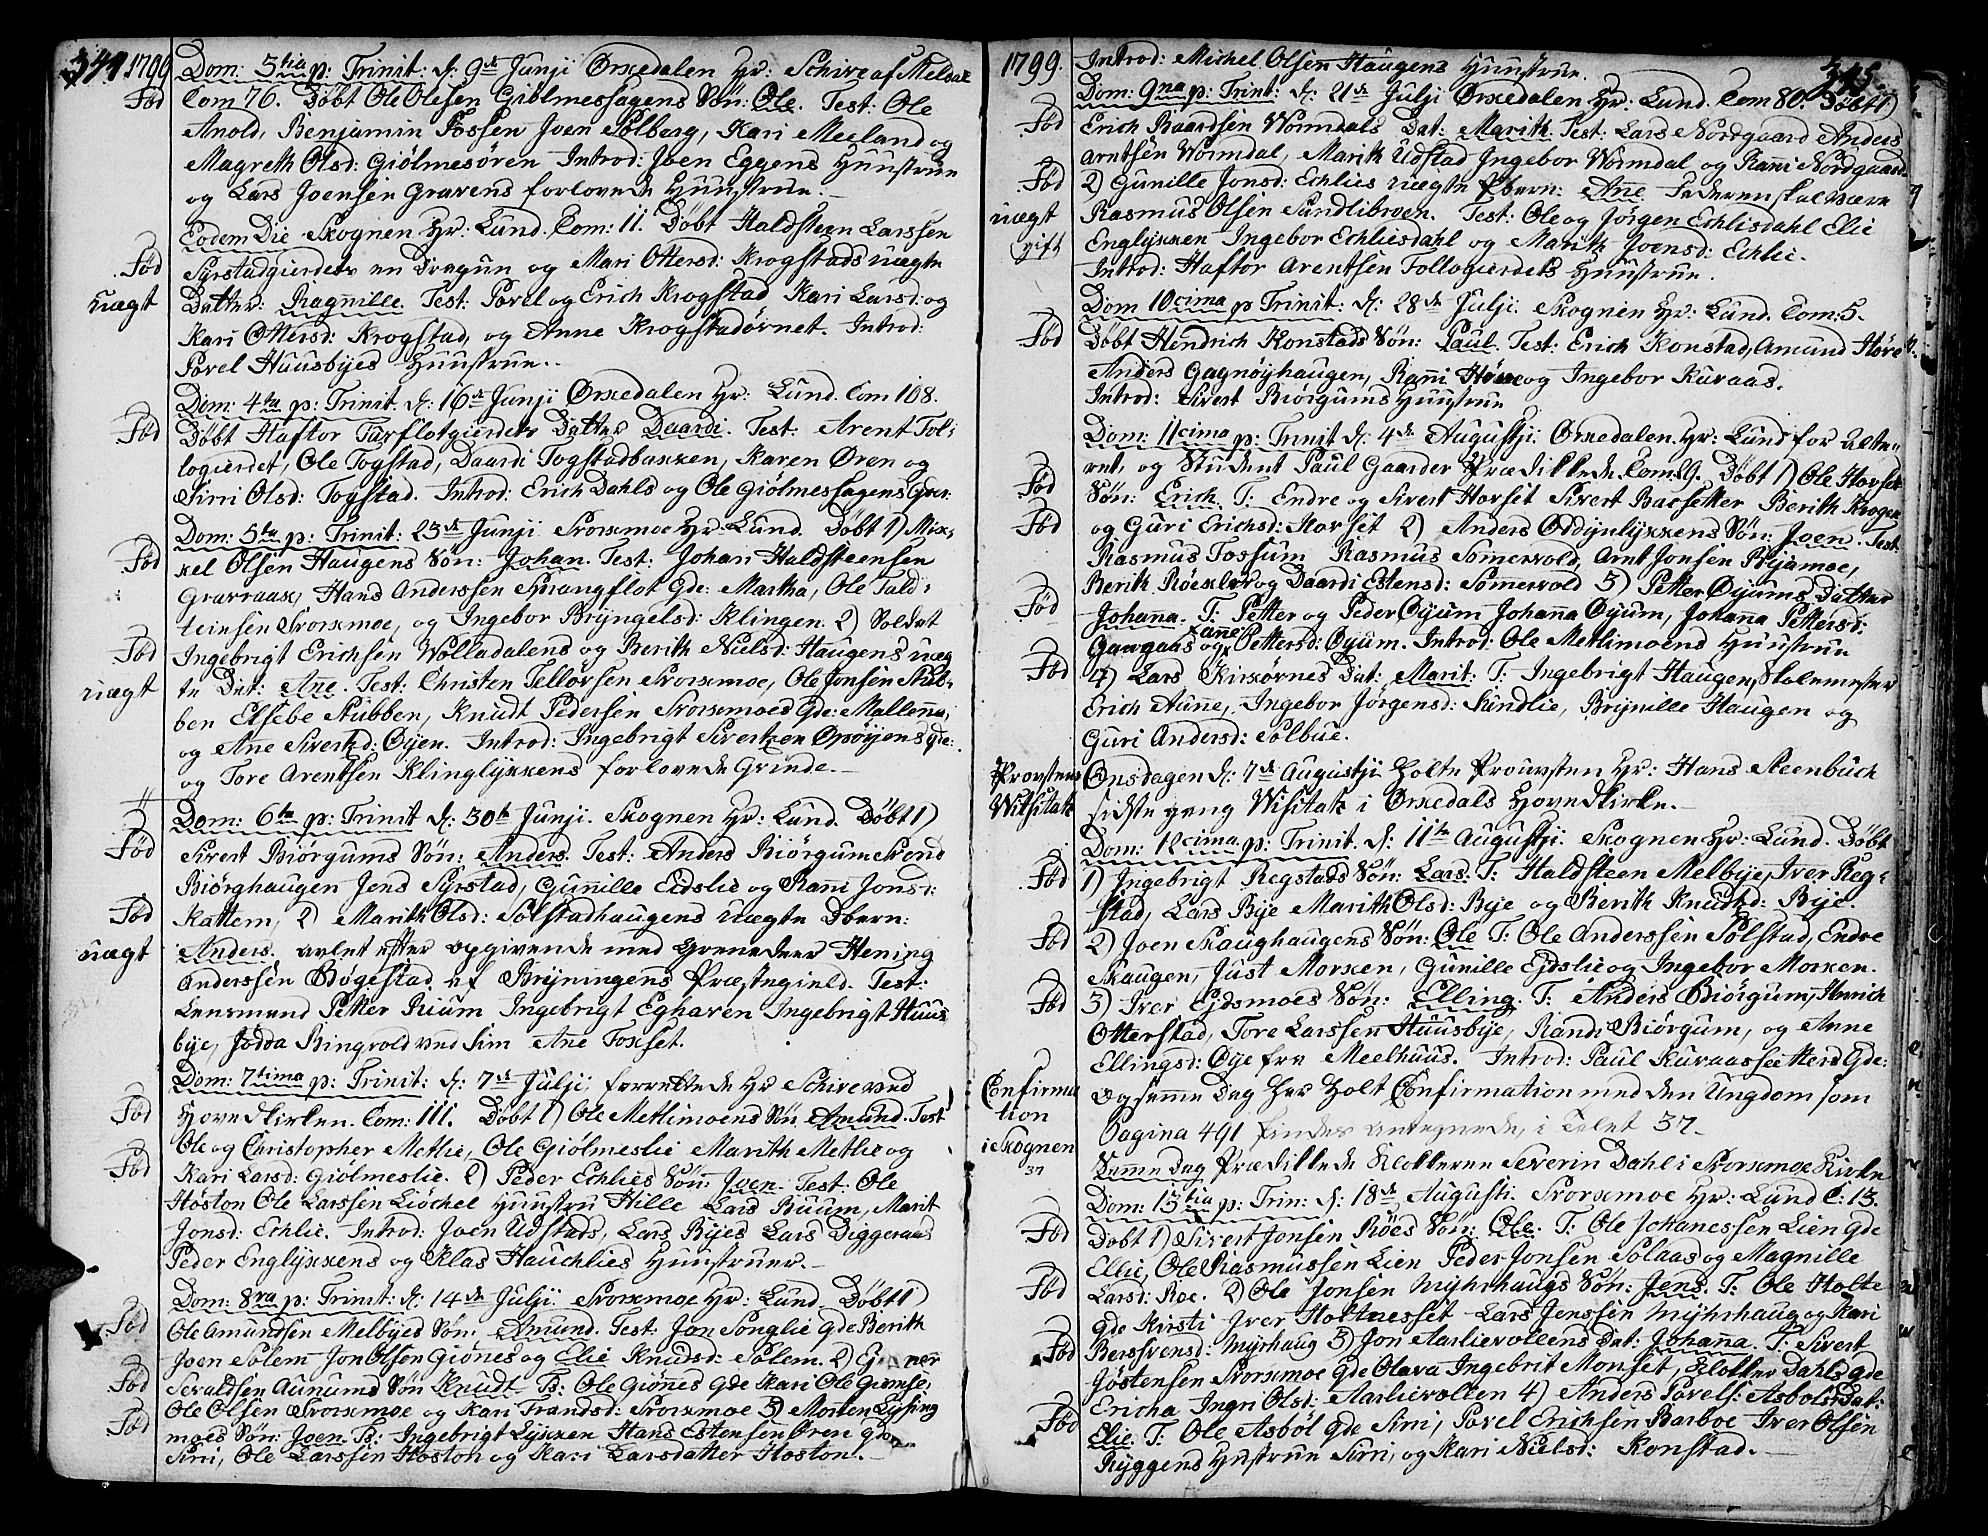 344 1799
Dom: 3tia p: Trinit: d: 9de Junji Ørkedalen Hr: Schive af Meldal
Fød Com 76. Døbt Ole Olsen Giølmessagens Søn: Ole. Test: Ole
Anold, Benjamin Fossen Joen Solberg, Kari Meeland og
Magreth Olsd: Giølmesøren Introd: Joen Eggens Huustrue
og Lars Joensen Gravens forlovede Huustrue.
Eodem Die Skognen Hr: Lund. Com: 11. Døbt Haldsteen Larssen
Fød Syrstadgierdet en Dragun og Mari Ottersd: Krogstads uægte
uægt Datter: Ragnille. Test: Povel og Erich Krogstad Kari Larsd: og
Kari Ottersd: Krogstad, og Anne Krogstadørnet. Introd:
Povel Huusbyes Huustrue.
Dom: 4ta p: Trinit: d: 16de Junji Ørkedalen Hr: Lund. Com 108.
Fød Døbt Haftor Tuxflotgierdets Datter Daardi. Test: Arent Fol-
logierdet, Ole Togstad, Daardi Togstadbakken, Karen Øren og
Sirri Olsd: Togstad. Introd: Erich Dahls og Ole Giølmessagens Gde:
Dom: 5ta p: Trinit: 23de Junji Svorkmoe Hr: Lund. Døbt 1) Mik-
Fød kel Olsen Haugens Søn: Johan. Test: Johan Haldsteensen
Gravraak, Hans Anderssen Sprangflot Gde: Martha, Ole Fald-
teinsen Svorkmoe, og Ingebor Bryngelsd: Klingen. 2) Soldat
Fød Ingebrigt Erichsen Wolladalens og Berith Nielsd: Haugens uæg
uægt te Dat: Ane. Test: Christen Tellorsen Svorkmoe, Ole Jonsen Stub-
ben Elsebe Stubben, Knudt Pedersen Svorkmoes Gde: Mallenna,
og Ane Sivertsd: Øyen. Introd: Ingebrigt Sivertsen Opøyens gde:
og Tore Arentsen Klinglykkens forlovede Qvinde.
Dom: 6ta p: Trinit d: 30te Junji. Skognen Hr: Lund. Døbt 1)
Fød Sivert Biørgums Søn: Anders. Test: Anders Biørgum Svend
Biørghaugen Jens Syrstad, Gunnille Eidslie og Rani Jonsd:
Fød Kattem, 2) Marith Olsd: Solstadhaugens uægte Dbarn:
uægt Anders. avlet efter opgivende med Grenadeer Hening
Anderssen Bøgestad af Bryningens Præstegield. Test:
Lensmand Petter Rium Ingebrigt Eghaven Ingebrigt Huus
bye, Jødda Ringvold ved Sim Ane Foxset.
Dom: 7tima p: Trinit: d: 7de Julji forrettede Hr Schive ved
Fød Hovedkirken. Com: 111. Døbt 1) Ole Metlimoens Søn Amund. Test
Ole og Christopher Metlie, Ole Giølmeslie Marith Metlie og
Fød Kari Larsd: Giølmeslie. 2) Peder Echlies Søn: Joen. Test: Ole
Høston Ole Larssen Liøchel Huustru Hille Lars Ruum, Marit
Jonsd: Echlie. Introd: Joen Udstads, Lars Byes Lars Diggeraas
Peder Englykkens og Klas Hauchlies Huustruer.
Dom: 8va p: Trinit: d: 14de Julji Svorkmoe Hr: Lund. Døbt 1)
Fød Ole Amundsen Melbyes Søn: Amund. Test: Jon Songlie gde Berith
Joen Solem Jon Olsen Giønes og Elie Knudsd: Solem. 2)
Fød Seraldsen Aunums Søn Knudt. T: Ole Giønes Gde Kari Ole
Ole Olsen Svorkmoe og Kari Frandsd: Svorkmoe 3) Morten Lysing
Fød moes Søn: Joen. T: Ingebrigt Lykken Hans Estensen Øren gde
Siri, Ole Larssen Hoston og Kari Larsdatter Hoston.
1799. Introd: Michel Olsen Haugens Huustrue. 345.
Dom: 9na p: Trint: d: 21de Julji Ørkedalen Hr: Lund. Com 80. Døbt 1)
Fød Erich Baardsen Wormdals Dat: Marith. Test: Lars Nordgaard Anders
Arntsen Wormdal, Marith Udstad Ingebor Wormdal og Rani Nordgaard
Fød 2) Gunille Jonsd: Echlies uægte Dbarn: Ane Faderen skal være
uægt Rasmus Olsen Sundlibroen. Test: Ole og Jørgen Echlisdahl Elie
gift Englykken Ingebor Echliesdahl og Marith Joensd: Echlie.
Introd: Haftor Arentsen Follogierdets Huustrue.
Dom 10cima p Trinit: d: 28de Julji. Skognen Hr: Lund. Com: 5.
Fød Døbt Hendrich Konstads Søn: Paul. Test: Erich Konstad, Amund Høre
Anders Gagnøyhaugen, Rani Høre og Ingebor Kuraas.
Introd: Sivert Biørgums Huustrue
Dom: 11cima p: Trinit d: 4de Augustji. Ørkedalen. Hr: Lund for Alte-
ret, og Student Paul Gaarder Prædikkede. Com 29. Døbt 1) Ole Horset
Fød Søn: Erich. T: Endre og Sivert Horset Sivert Barsetter Berith Krogen
Fød og Guri Erichsd: Horset 2) Anders Oddynlykkens Søn: Joen. Test
Rasmus Fossum Rasmus Somervold, Arnt Jonsen Byamoe,
Berit Røexler og Daardi Estensd: Somervold 3) Petter Øyums Datter
Fød Johanna. T: Petter og Peder Øyum Johanna Øyum, Johanna Pettersd:
Gangaas og ane Pettersd: Øyum. Introd: Ole Metlimoens Huustrue
Fød 4) Lars Kirkørnes Dat: Marit. T: Ingebrigt Haugen, Skolemester
Erich Aune, Ingebor Jørgensd: Sundlie, Brynille Haugen og
Guri Andersd: Solbue.
Provstens Onsdagen d: 7de Augustji holte Prousten Hr: Hans Steenbuch
Witsitatz sidste gang Visitatz i Ørkedals Hovedkirke.
Dom: 12cima p: Trinit. d: 11te Augustji. Skognen Hr: Lund. Døbt
Fød 1) Ingebrigt Regstads Søn: Lars. T: Haldsteen Melbye, Iver Reg-
stad, Lars Bye Marith Olsd: Bye og Berith Knudtsd: Bye.
Fød 2) Joen Skaughaugens Søn: Ole T: Ole Anderssen Solstad, Endre
Skaugen, Just Morken, Gunille Ejdslie og Ingebor Morken.
Fød 3) Iver Ejdsmoes Søn: Elling. T: Anders Biørgum, Henrich
Otterstad, Tore Larssen Huusbye, Randi Biørgum, og Anne
Ellingsd: Øye fra Meelhuus. Introd: Paul Kuraassetters Gde:
Confirma Ogsamme Dag her holt Confirmation med den Ungdom som
tion Pagina 491 findes antegnede, i Talet 37
i Skognen 37 Samme Dag Prædikkede Klokkeren Severin Dahl i Svorkmoe Kirke
Dom: 13tia p: Trin: d: 18de Augusti. Svorkmoe Hr: Lund C: 13.
Fød Døbt 1) Sivert Jonsen Röes Søn: Ole. T: Ole Johanessen Lien gde
Ellie, Ole Rasmussen Lien Peder Jonsen Solaas og Magnille
Fød Larsd: Roe. 2) Ole Jonsen Myhrhaugs Søn: Jens. T: Ole Holte
gde Kirsti Iver Holtnesset Lars Jenssen Myhrhaug og Kari
Fød Berssvensd: Myrhaug 3) Jon Aarlievolleens Dat: Johanna. T: Sivert
Jøstensen Svorkmoe gde Olava Ingebrit Monset, Klokker Dahls gde
Ericha Ingri Olsd: Aarlievollen 4) Anders Povels: Asbols Dat:
Fød Elie. T: Ole Asbøl gde Siri, Povel Erichsen Barboe Iver Olsen
Ryggens Huustrue Siri, og Kari Nielsd: Konstad.